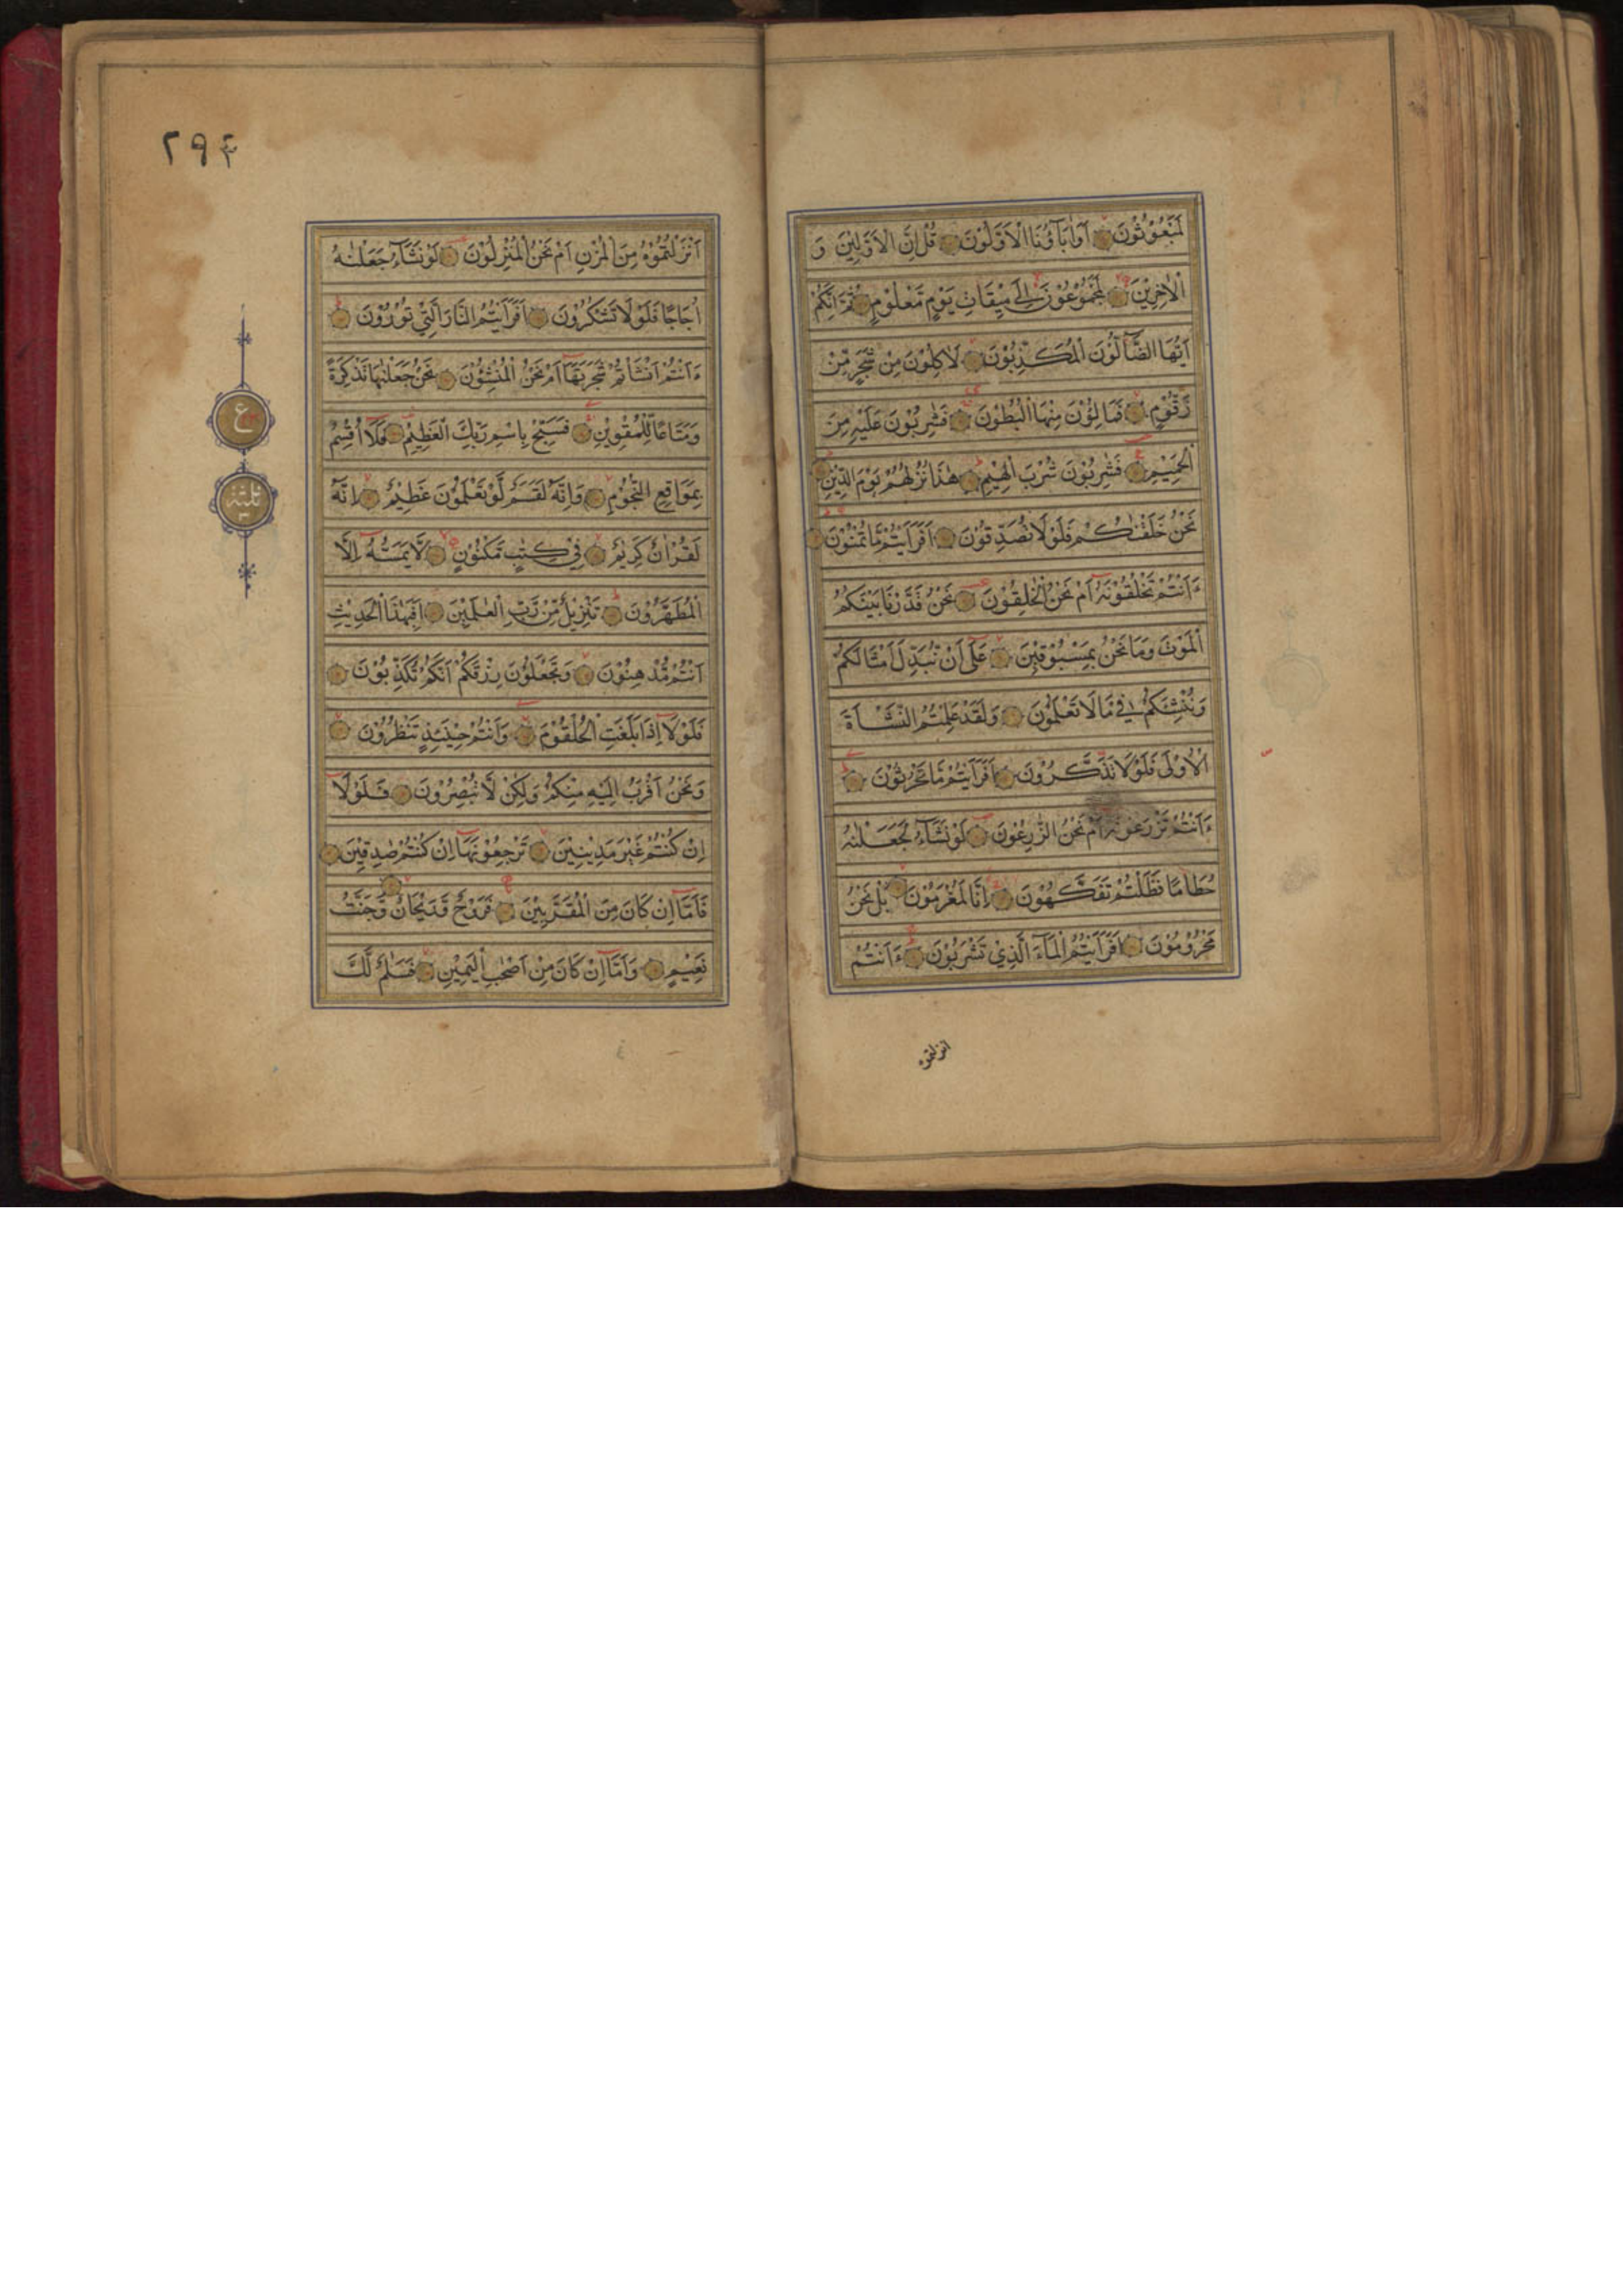 لَمَبْعُوْثُوْنَ اَوَاٰبَآؤُنَا الْاَوَّلُوْنَ قُلْ اِنَّ الْاَوَّلِيْنَ وَ
الْاٰخِرِيْنَ لَمَجْمُوْعُوْنَ اِلٰى مِيْقَاتِ يَوْمٍ مَّعْلُوْمٍ ثُمَّ اِنَّكُمْ
اَيُّهَا الضَّآلُّوْنَ الْمُكَذِّبُوْنَ لَاٰكِلُوْنَ مِنْ شَجَرٍ مِّنْ
زَقُّوْمٍ فَمَالِؤُنَ مِنْهَا الْبُطُوْنَ فَشٰرِبُوْنَ عَلَيْهِ مِنَ
الْحَمِيْمِ فَشٰرِبُوْنَ شُرْبَ الْهِيْمِ هٰذَا نُزُلُهُمْ يَوْمَ الدِّيْنِ
نَحْنُ خَلَقْنٰكُمْ فَلَوْلَا تُصَدِّقُوْنَ اَفَرَاَيْتُمْ مَّا تُمْنُوْنَ
ءَاَنْتُمْ تَخْلُقُوْنَهٗ اَمْ نَحْنُ الْخٰلِقُوْنَ نَحْنُ قَدَّرْنَا بَيْنَكُمُ
الْمَوْتَ وَمَا نَحْنُ بِمَسْبُوْقِيْنَ عَلٰى اَنْ نُّبَدِّلَ اَمْثَالَكُمْ
وَنُنْشِئَكُمْ فِيْ مَا لَا تَعْلَمُوْنَ وَلَقَدْ عَلِمْتُمُ النَّشْاَةَ
الْاُوْلٰى فَلَوْلَا تَذَكَّرُوْنَ اَفَرَاَيْتُمْ مَّا تَحْرُثُوْنَ
ءَاَنْتُمْ تَزْرَعُوْنَهٗ اَمْ نَحْنُ الزّٰرِعُوْنَ لَوْ نَشَآءُ لَجَعَلْنٰهُ
حُطَامًا فَظَلْتُمْ تَفَكَّهُوْنَ اِنَّا لَمُغْرَمُوْنَ بَلْ نَحْنُ
مَحْرُوْمُوْنَ اَفَرَاَيْتُمُ الْمَآءَ الَّذِيْ تَشْرَبُوْنَ ءَاَنْتُمْ
انزلتموه
٢٩٤
اَنْزَلْتُمُوْهُ مِنَ الْمُزْنِ اَمْ نَحْنُ الْمُنْزِلُوْنَ لَوْ نَشَآءُ جَعَلْنٰهُ
اُجَاجًا فَلَوْلَا تَشْكُرُوْنَ اَفَرَاَيْتُمُ النَّارَ الَّتِيْ تُوْرُوْنَ
ءَاَنْتُمْ اَنْشَاْتُمْ شَجَرَتَهَا اَمْ نَحْنُ الْمُنْشِؤُنَ نَحْنُ جَعَلْنٰهَا تَذْكِرَةً
وَمَتَاعًا لِّلْمُقْوِيْنَ فَسَبِّحْ بِاسْمِ رَبِّكَ الْعَظِيْمِ فَلَا اُقْسِمُ
بِمَوَاقِعِ النُّجُوْمِ وَاِنَّهٗ لَقَسَمٌ لَّوْ تَعْلَمُوْنَ عَظِيْمٌ اِنَّهٗ
لَقُرْاٰنٌ كَرِيْمٌ فِيْ كِتٰبٍ مَّكْنُوْنٍ لَّا يَمَسُّهٗ اِلَّا
الْمُطَهَّرُوْنَ تَنْزِيْلٌ مِّنْ رَّبِّ الْعٰلَمِيْنَ اَفَبِهٰذَا الْحَدِيْثِ
اَنْتُمْ مُّدْهِنُوْنَ وَتَجْعَلُوْنَ رِزْقَكُمْ اَنَّكُمْ تُكَذِّبُوْنَ
فَلَوْلَا اِذَا بَلَغَتِ الْحُلْقُوْمَ وَاَنْتُمْ حِيْنَئِذٍ تَنْظُرُوْنَ
وَنَحْنُ اَقْرَبُ اِلَيْهِ مِنْكُمْ وَلٰكِنْ لَّا تُبْصِرُوْنَ فَلَوْلَا
اِنْ كُنْتُمْ غَيْرَ مَدِيْنِيْنَ تَرْجِعُوْنَهَا اِنْ كُنْتُمْ صٰدِقِيْنَ
فَاَمَّا اِنْ كَانَ مِنَ الْمُقَرَّبِيْنَ فَرَوْحٌ وَّرَيْحَانٌ وَّجَنَّتُ
نَعِيْمٍ وَاَمَّا اِنْ كَانَ مِنْ اَصْحٰبِ الْيَمِيْنِ فَسَلٰمٌ لَّكَ
ع